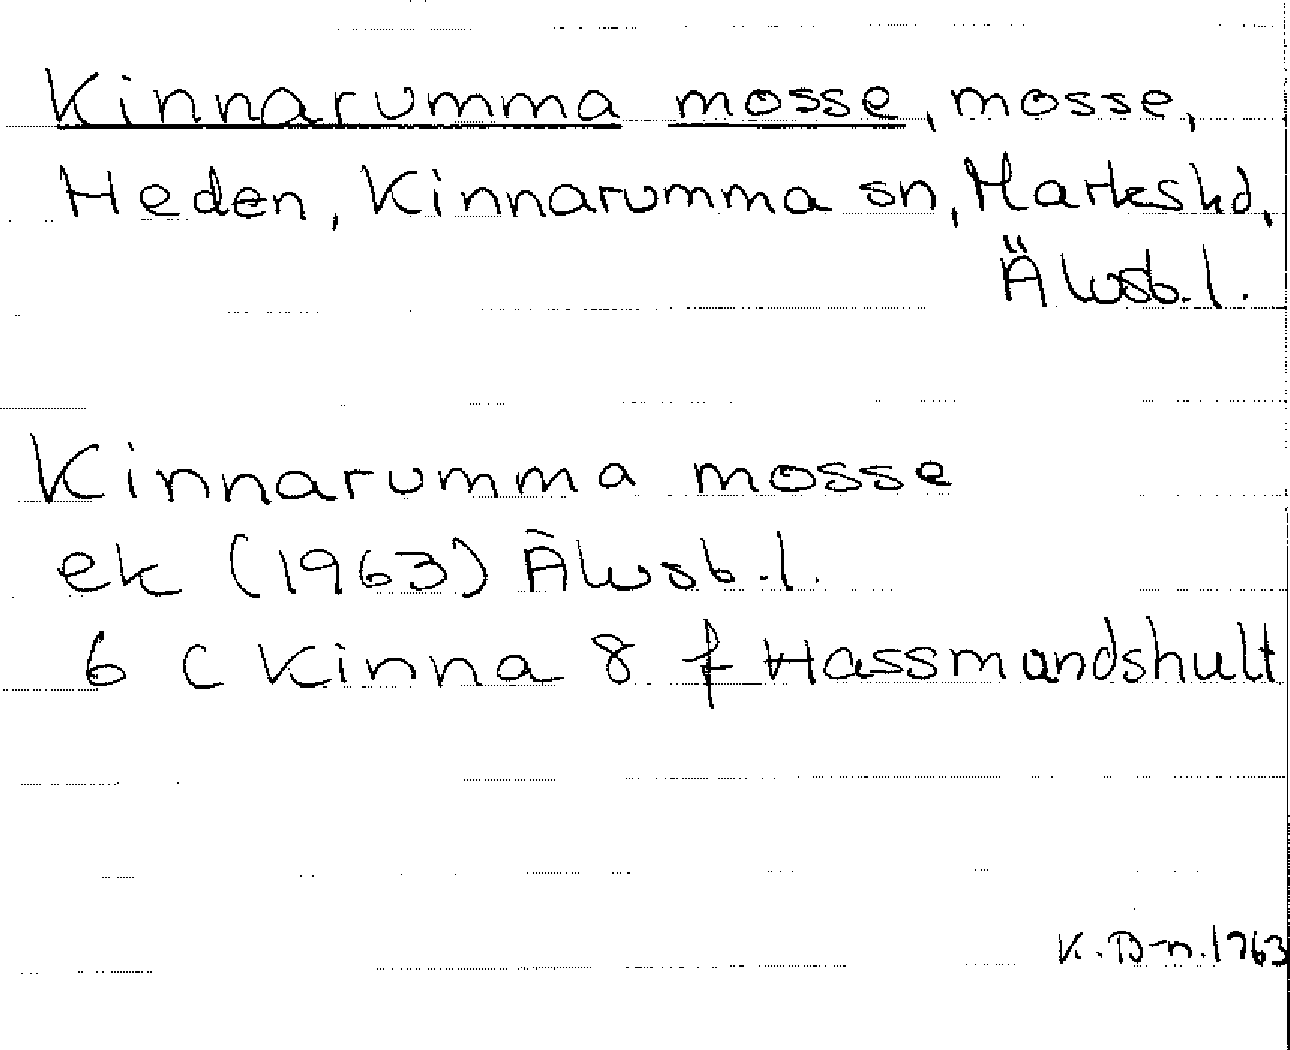 Kinnarumma mosse, mosse,
Heden, Kinnarumma sn, Markshd,
Älvsb. l.
Kinnarumma mosse
ek (1963) Älvsb. l.
6 C Kinna 8 f Hassmandshult
K. D-n. 1963